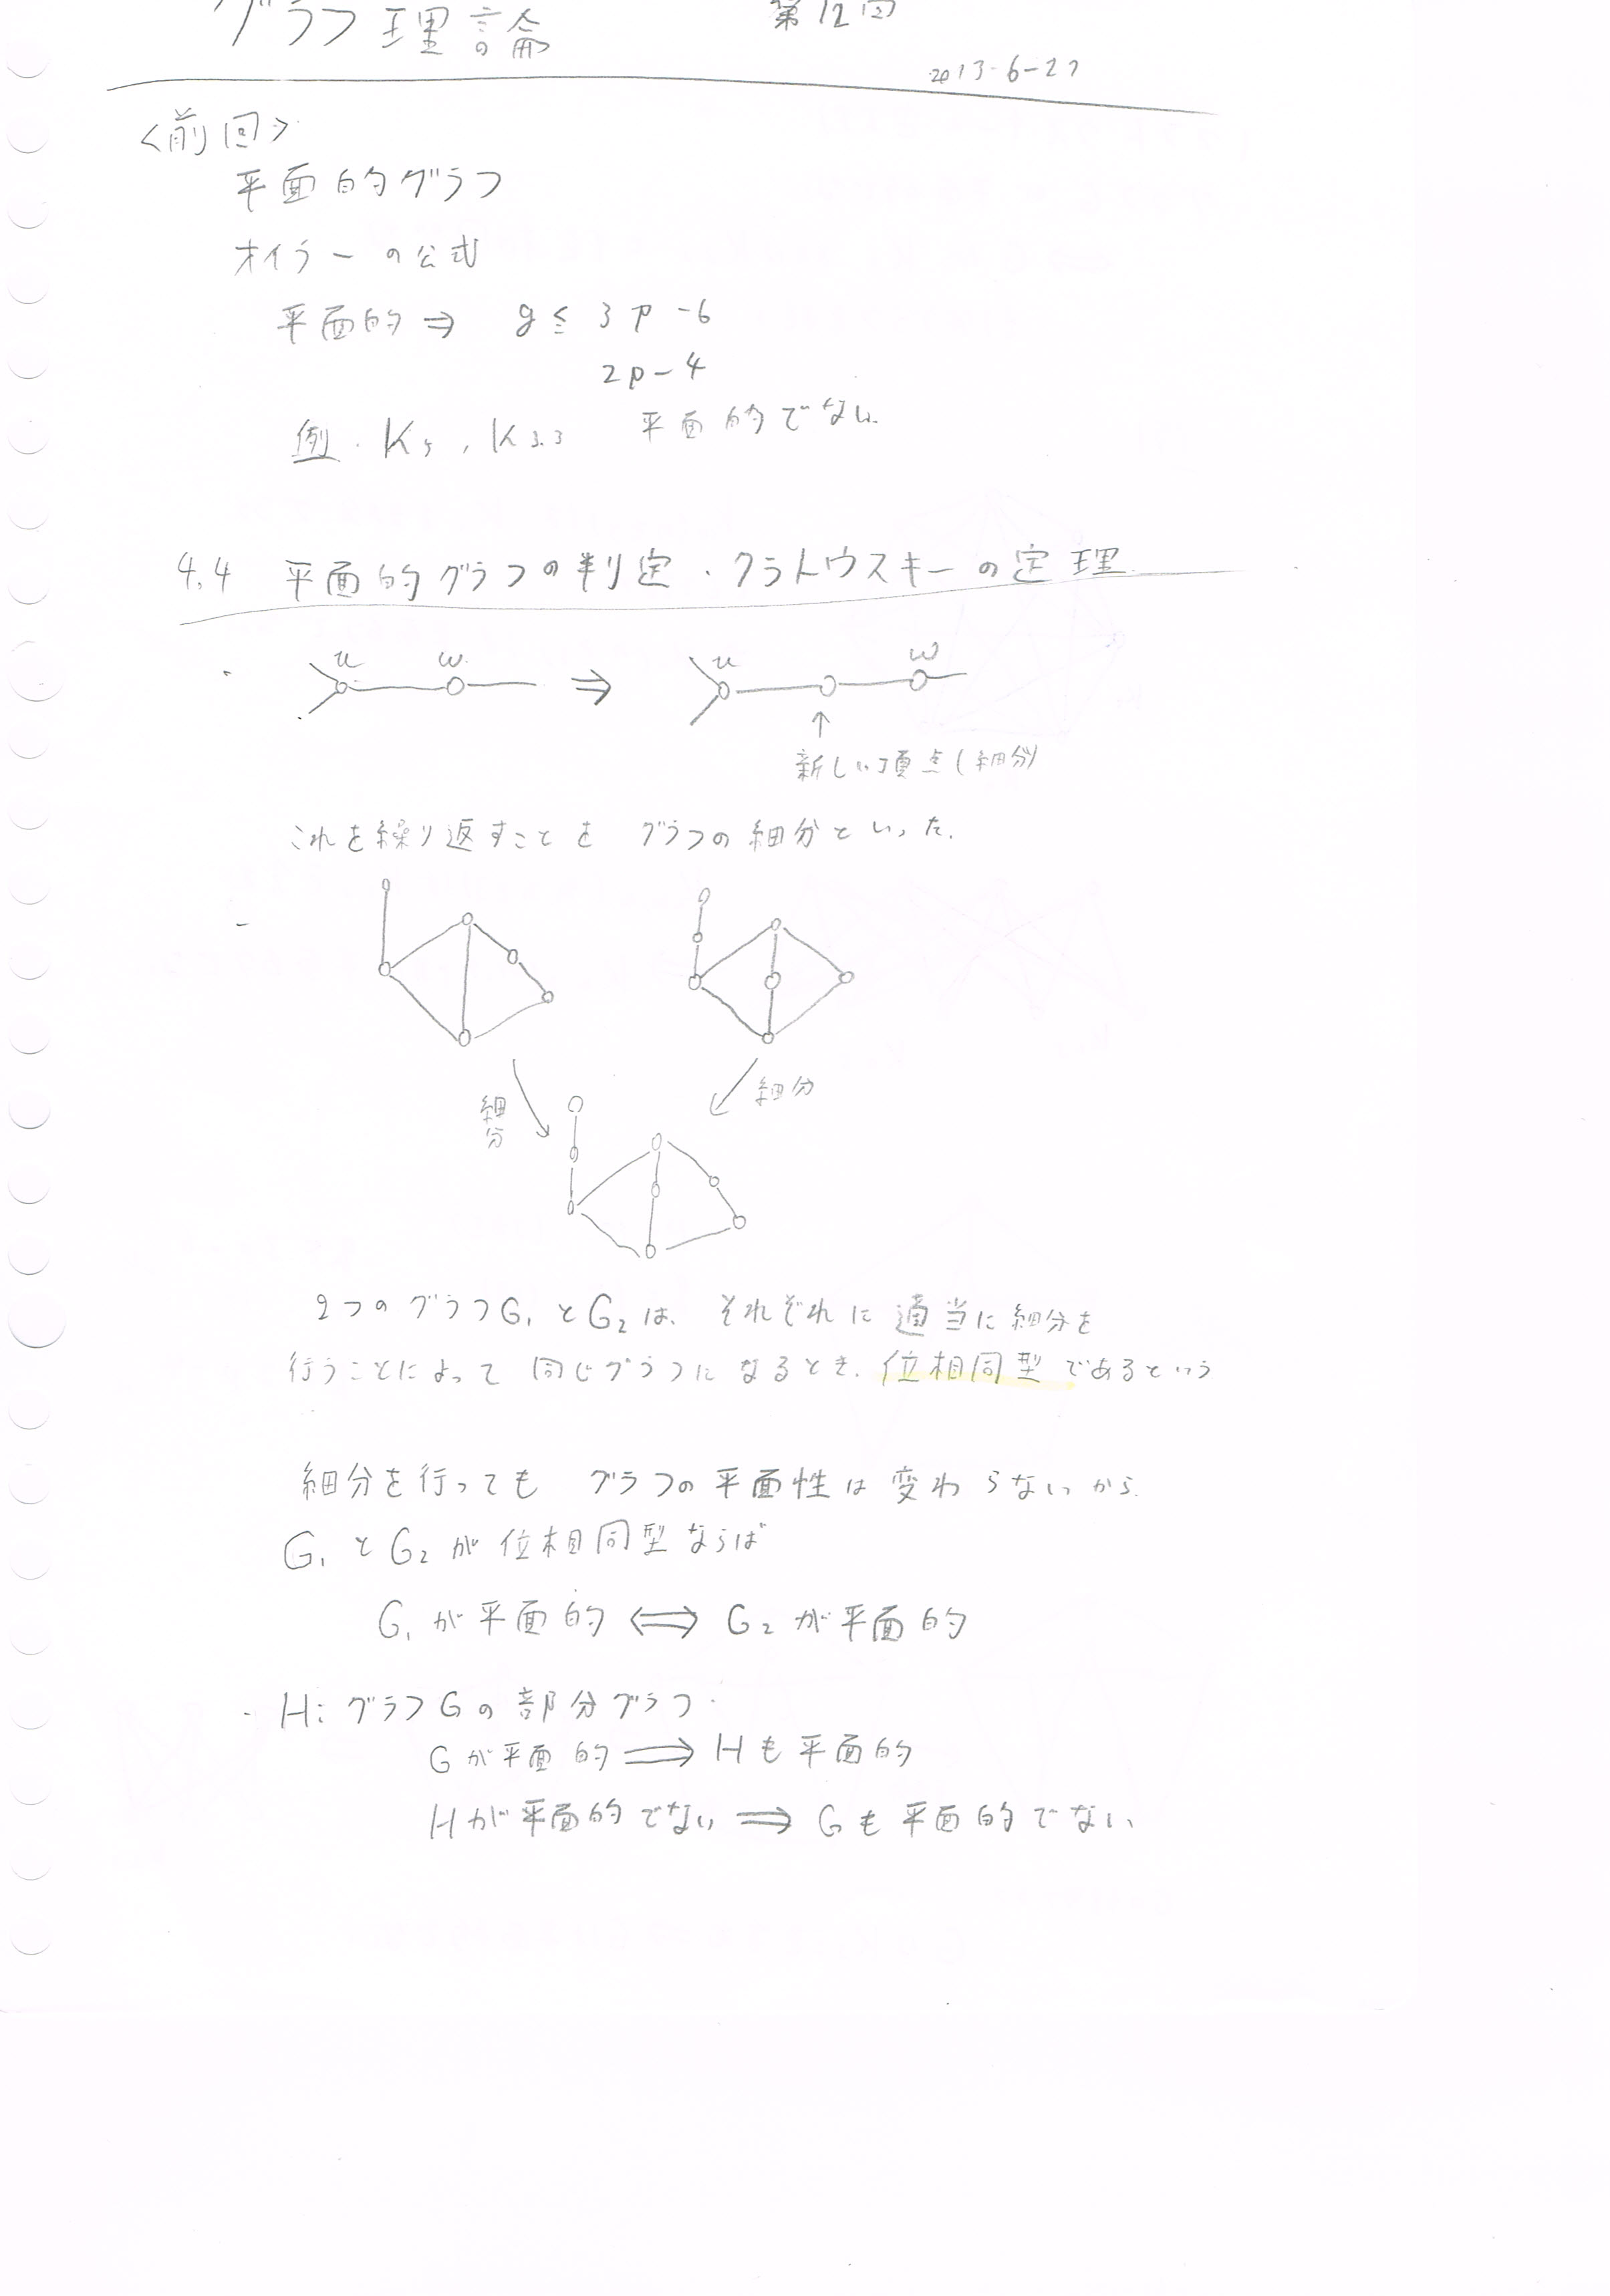 グラフ理論 第12回
2013-6-27
<前回>
平面的グラフ
オイラーの公式
平面的 ⇒ q ≦ 3p-6
2p-4
例. K5, K3.3 平面的でない
4.4 平面的グラフの判定・クラトウスキーの定理
u w ⇒ u w
↑
新しい頂点(細分)
これを繰り返すことを グラフの細分といった.
細分 細分
2つのグラフG1とG2は、それぞれに適当に細分を
行うことによって同じグラフになるとき.位相同型であるという
細分を行っても グラフの平面性は変わらないから.
G1とG2が位相同型ならば
G1が平面的 ⟺ G2が平面的
・H: グラフGの部分グラフ.
Gが平面的 ⟹ Hも平面的
Hが平面的でない ⟹ Gも平面的でない